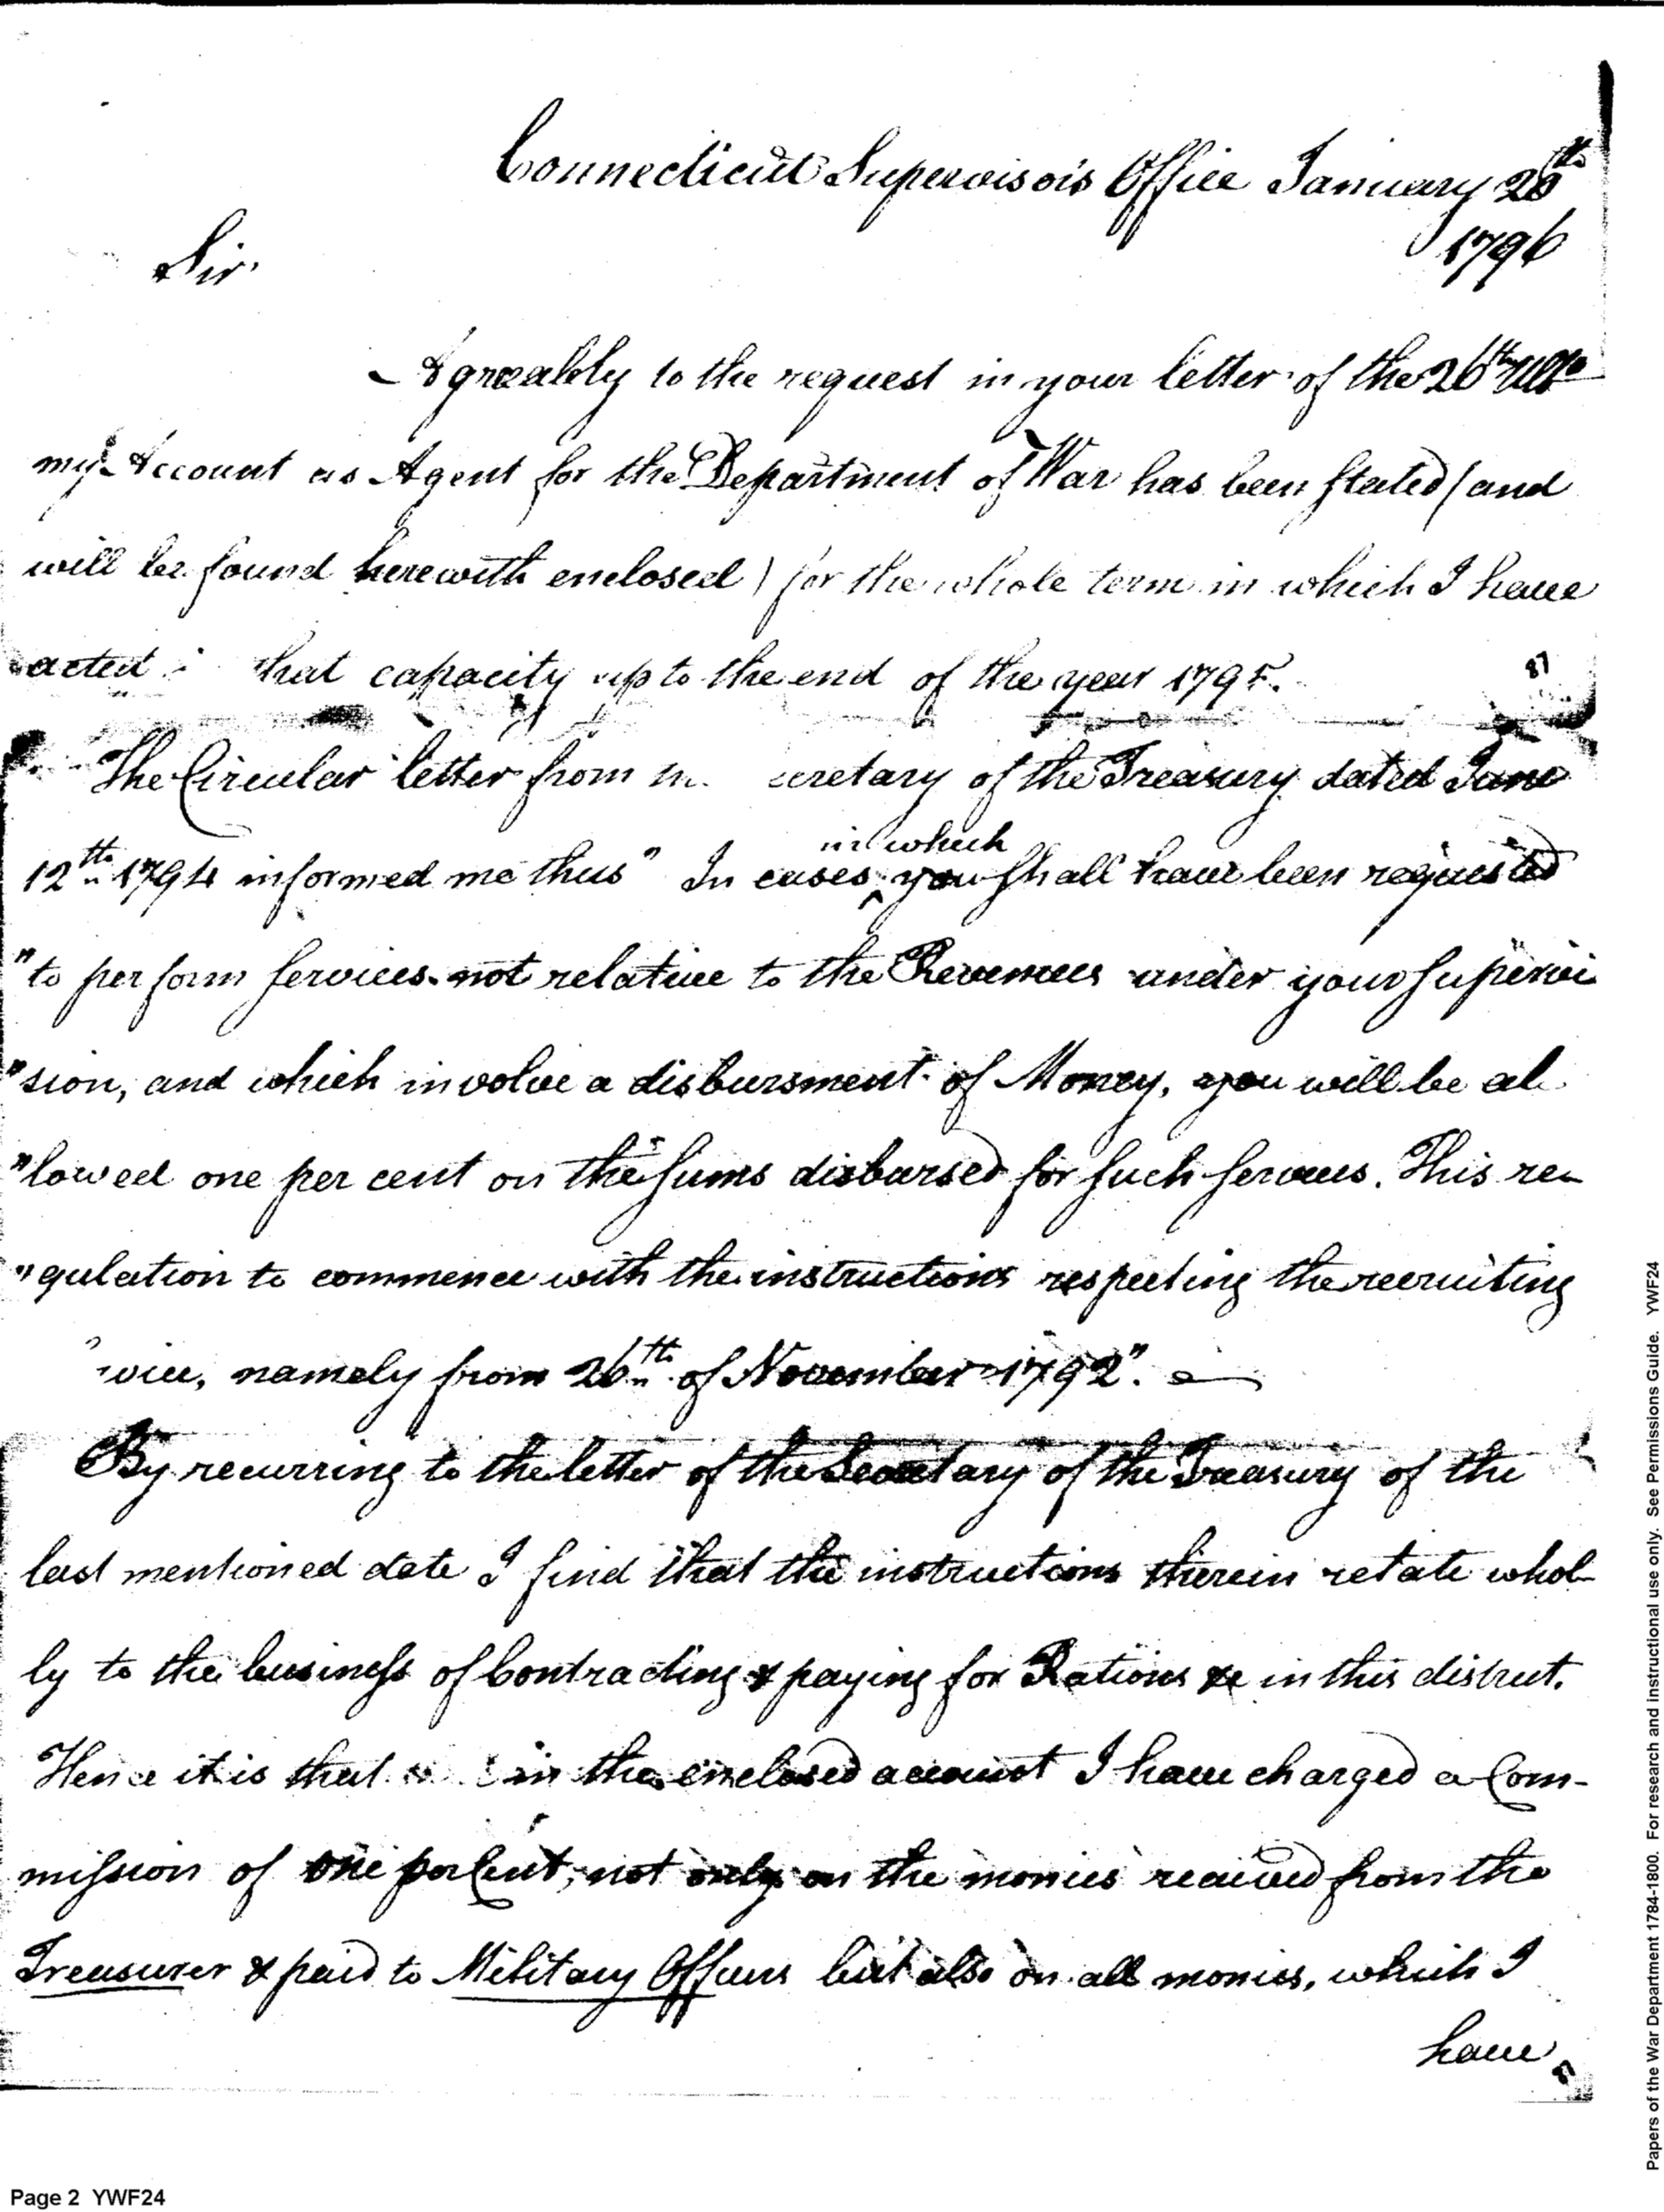 Connecticut Supervisors Office January 20th
1796
Sir
Agreeably to the request in your letter of the 26th Ulto
my Account as Agent for the Department of War has been stated (and
will be found herewith enclosed) for the whole term in which I have
acted that capacity up to the end of the year 1795.
87
The Circular letter from secretary of the Treasury dated June
in which
12th 1794 informed me thus " In cases ^ you shall have been requested
"to perform services not relative to the Revenues under your supervi
"sion, and which involve a disbursment of Money, you will be al
"lowed one per cent on the sums disbursed for such services. This re-
"gulation to commence with the instructions respecting the recruiting
vice, namely from 26th of November 1792".
By recurring to the letter of the Secretary of the Treasury of the
last mentioned date I find that the instructions therein relate whol-
ly to the business of Contracting & paying for Rations &c in this district.
Hence it is that in the enclosed account I have charged a Com-
mission of one per Cent, not only on the monies received from the
Treasurer & paid to Military Officers but also on all monies, which I
have
87
Page 2 YWF24
Papers of the War Department 1784-1800. For research and instructional use only. See Permissions Guide. YWF24